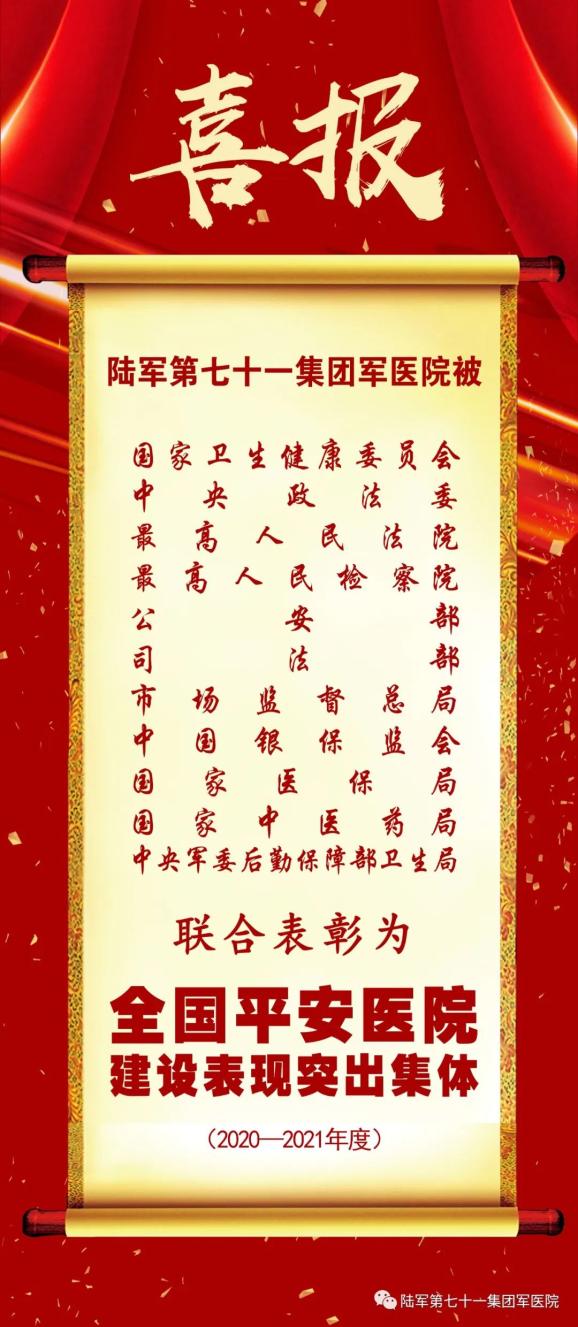 喜报
陆军第七十一集团军医院被
国家卫生健康委员会
中央政法委
最高人民法院
最高人民检察院
公安部
司法部
市场监督总局
中国银保监会
国家医保局
国家中医药局
中央军委后勤保障部卫生局
联合表彰为
全国平安医院
建设表现突出集体
（2020—2021年度）
陆军第七十一集团军医院